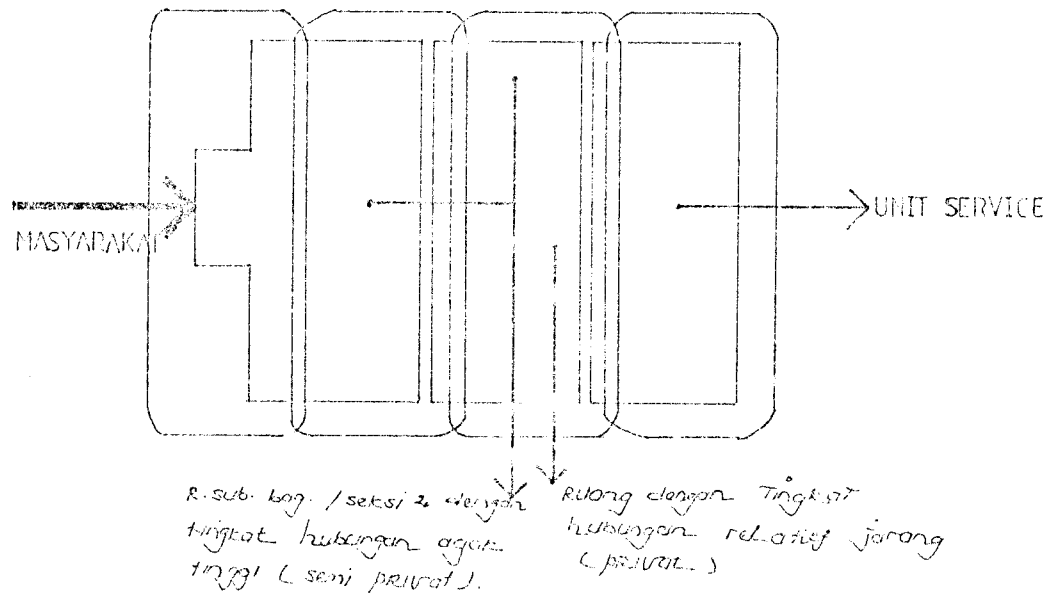 MASYARAKAT
UNIT SERVICE
R. sub. bag. / seksi 2 dengan
tingkat hubungan agak
tinggi ( semi privat ).
Ruang dengan Tingkat
hubungan relatif jarang
( privat )